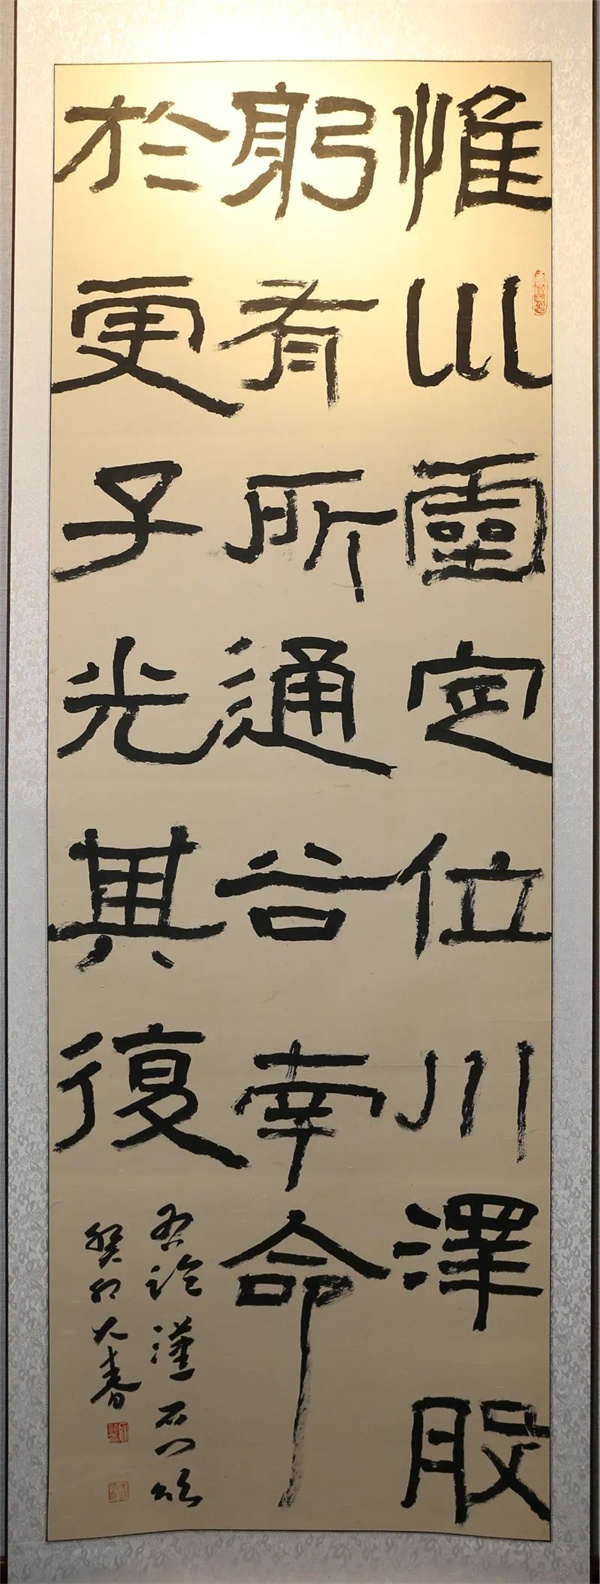 惟巛靈定位川澤股
躬有所通谷南命
於更子光其復
右臨漢石門頌
癸卯大春